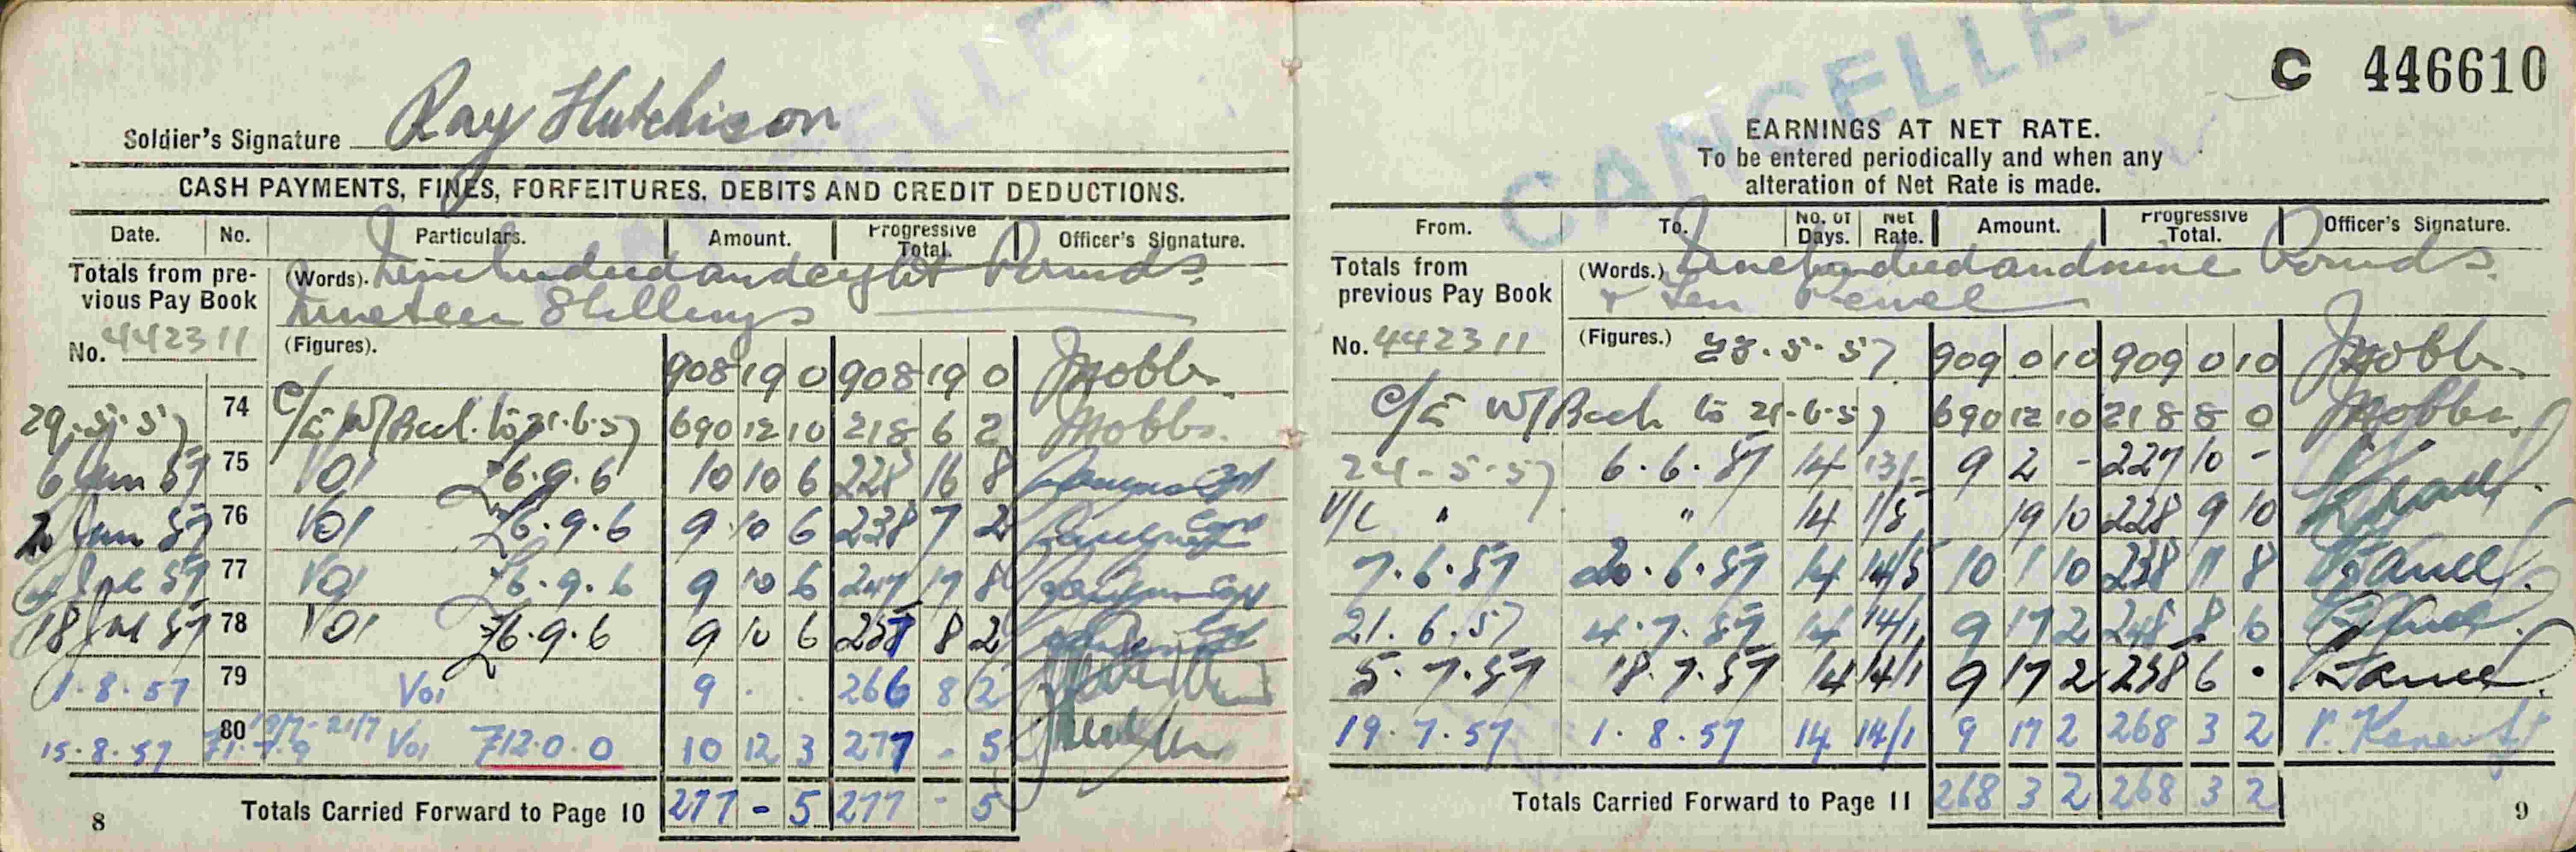 CANCELLED
Soldier's Signature Ray Hutchison
CASH PAYMENTS, FINES, FORFEITURES, DEBITS AND CREDIT DEDUCTIONS.
Date. No. Particulars. Amount. Progressive Total. Officer's Signature.
Totals from pre-
vious Pay Book
No. 442311
(Words). Ninehundredandeight Pounds
Nineteen Shillings
(Figures). 908 19 0 908 19 0 JMobbs.
29.5.57 74 C/E W/Book to 21.6.57 690 12 10 218 6 2 JMobbs.
6 Jun 57 75 V01 £6.9.6 10 10 6 228 16 8
Jun 57 76 V01 £6.9.6 9 10 6 238 7 2 Capt
57 77 V01 £6.9.6 9 10 6 247 17 8 Capt
18 Jul 57 78 V01 £6.9.6 9 10 6 257 8 2
1.8.57 79 V01 9 . . 266 8 2
15.8.57 80 19/7-21/7 V01 £12.0.0 10 12 3 277 - 5
Totals Carried Forward to Page 10 277 - 5 277 - 5
8
C 446610
CANCELLED
EARNINGS AT NET RATE.
To be entered periodically and when any
alteration of Net Rate is made.
From. To. No. of Days. Net Rate. Amount. Progressive Total. Officer's Signature.
Totals from
previous Pay Book
No. 442311
(Words.) Ninehundredandnine Pounds
+ Ten Pence
(Figures.) 23.5.57 909 0 10 909 0 10 JMobbs.
C/E W/Book to 21.6.57 690 12 10 218 8 0 JMobbs.
24-5-57 6.6.57 14 13/- 9 2 - 227 10 -
" " 14 1/5 19 10 228 9 10
7.6.57 20.6.57 14 14/5 10 1 10 238 11 8
21.6.57 4.7.57 14 14/1 9 17 2 248 8 10
5.7.57 18.7.57 14 14/1 9 17 2 258 6 .
19.7.57 1.8.57 14 14/1 9 17 2 268 3 2
Totals Carried Forward to Page 11 268 3 2 268 3 2
9